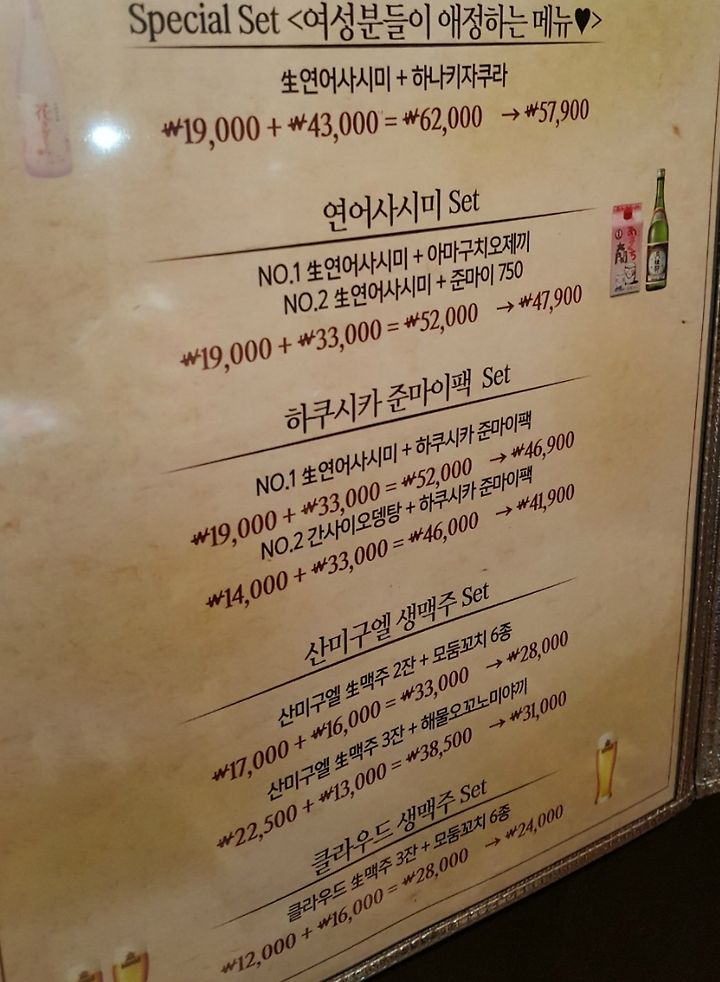 Special Set <여성분들이 애정하는 메뉴♥>
生연어사시미 + 하나키자쿠라
₩19,000 + ₩43,000 = ₩62,000 → ₩57,900
연어사시미 Set
NO.1 生연어사시미 + 아마구치오제끼
NO.2 生연어사시미 + 준마이 750
₩19,000 + ₩33,000 = ₩52,000 → ₩47,900
하쿠시카 준마이팩 Set
NO.1 生연어사시미 + 하쿠시카 준마이팩
₩19,000 + ₩33,000 = ₩52,000 → ₩46,900
NO.2 간사이오뎅탕 + 하쿠시카 준마이팩
₩14,000 + ₩33,000 = ₩46,000 → ₩41,900
산미구엘 생맥주 Set
산미구엘 生맥주 2잔 + 모둠꼬치 6종
₩17,000 + ₩16,000 = ₩33,000 → ₩28,000
산미구엘 生맥주 3잔 + 해물오꼬노미야끼
₩22,500 + ₩13,000 = ₩38,500 → ₩31,000
클라우드 생맥주 Set
클라우드 生맥주 3잔 + 모둠꼬치 6종
₩12,000 + ₩16,000 = ₩28,000 → ₩24,000